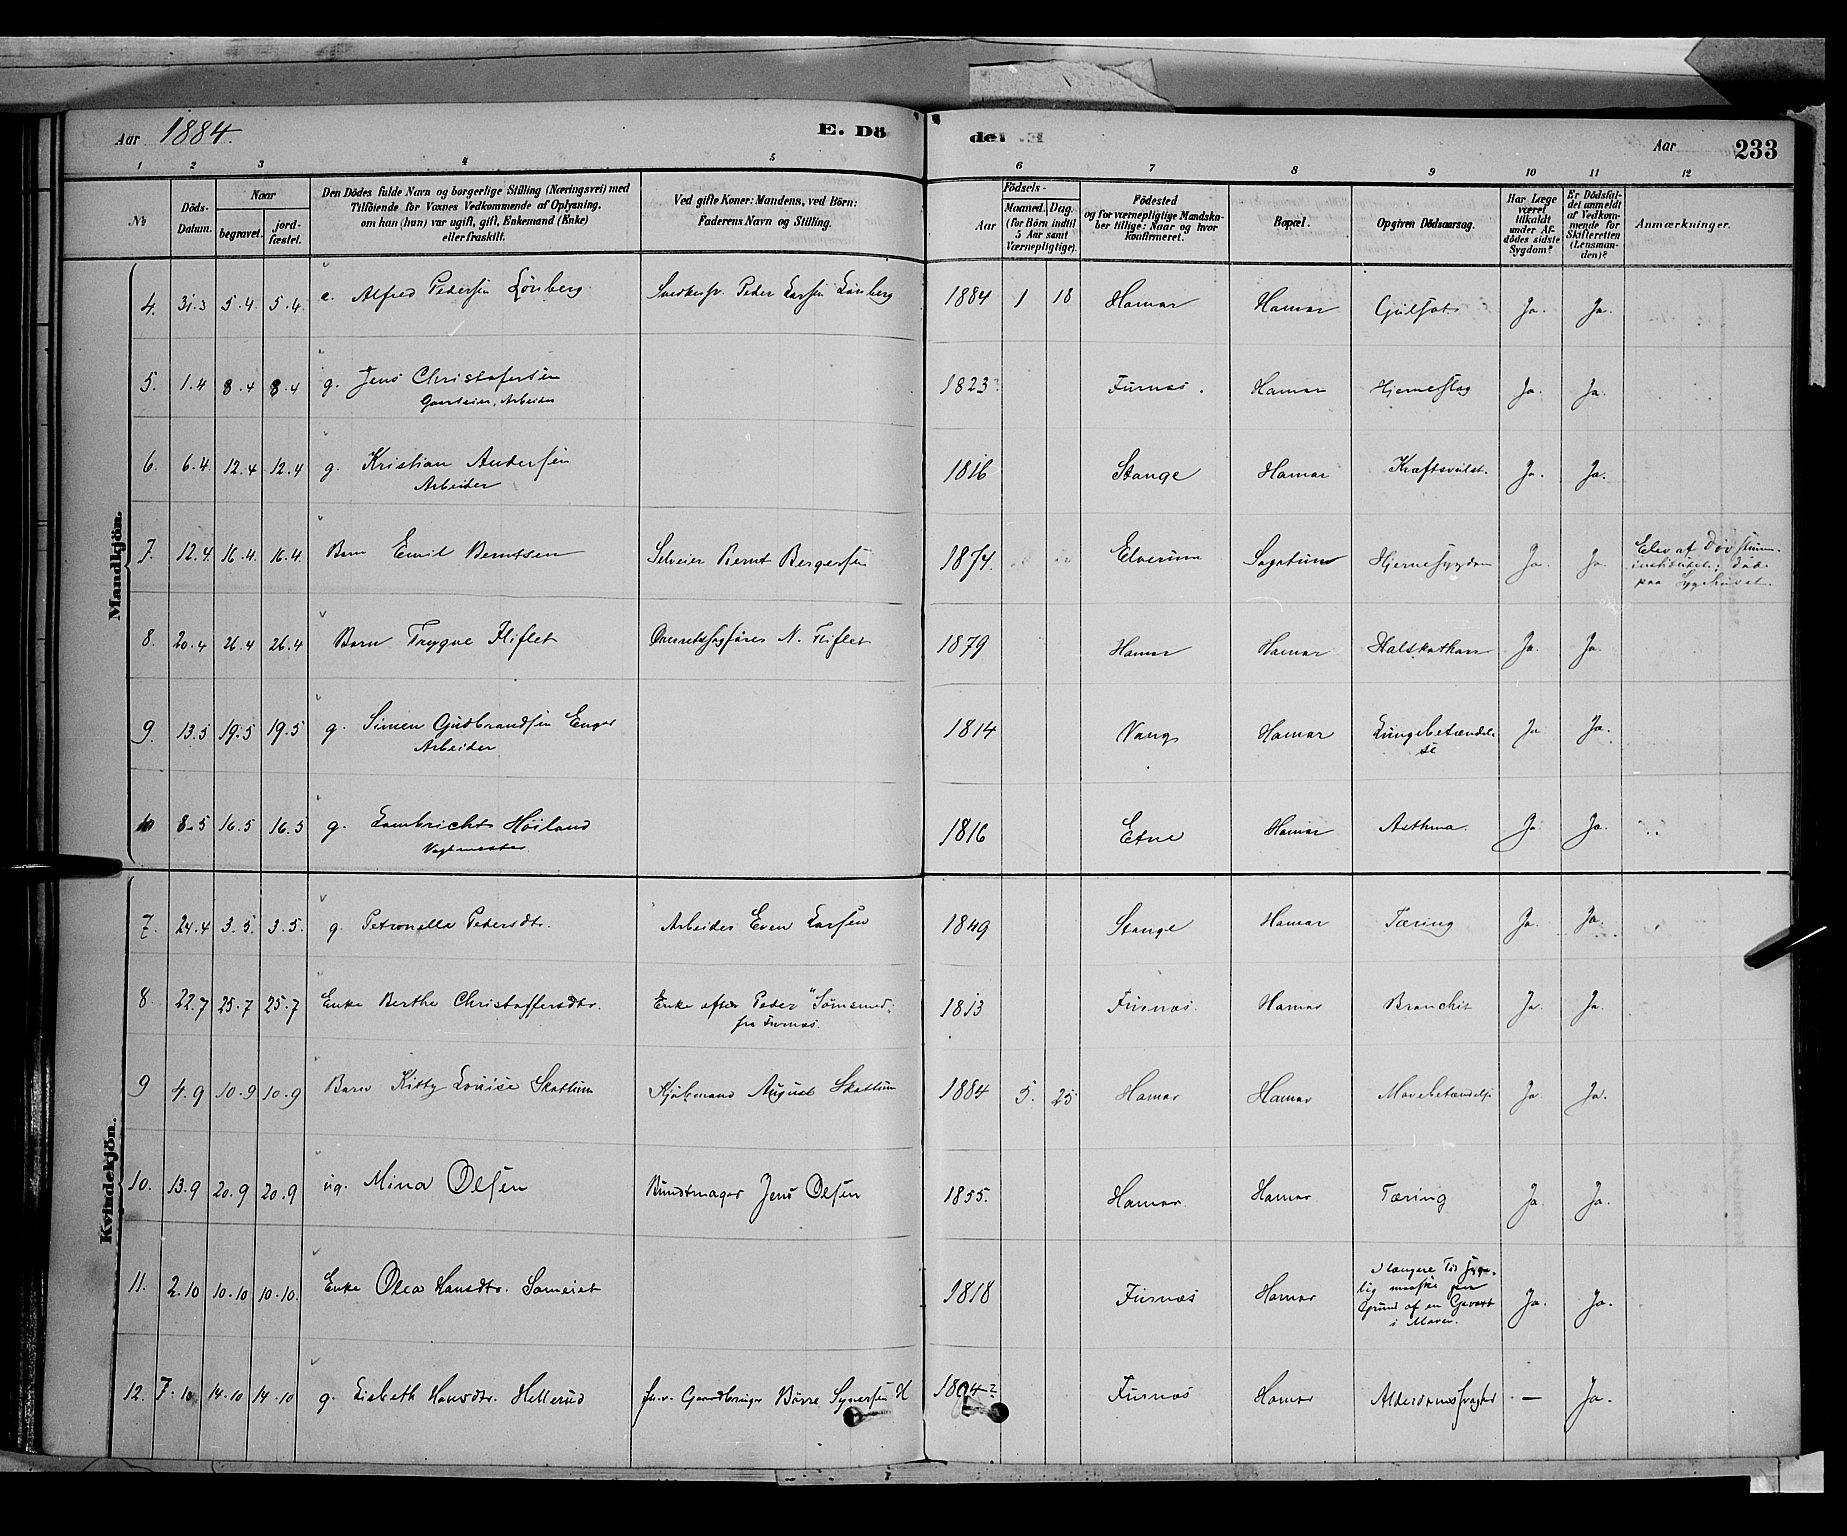 Aar 1884.
E. Dö
de
Aar
233
1 2 3 4 5 6 7 8 9 10 11 12
№
Döds-Datum.
Naar
begravet.
jord-fæstet.
Den Dödes fulde Navn og borgerlige Stilling (Næringsvei) med
Tilföiende for Voxnes Vedkommende af Oplysning,
om han (hun) var ugift, gift, Enkemand (Enke)
eller fraskilt.
Ved gifte Koner: Mandens, ved Börn:
Faderens Navn og Stilling.
Födsels-
Aar
Maaned. Dag.
(for Börn indtil
5 Aar samt
Værnepligtige).
Födested
og for værnepligtige Mandska-
ber tillige: Naar og hvor
konfirmeret.
Bopæl.
Opgiven Dödsaarsag.
Har Læge
været
tilkaldt
under Af-
dödes sidste
Sygdom?
Er Dödsfal-
det anmeldt
af Vedkom-
mende for
Skifteretten
(Lensman-
den)?
Anmærkninger.
Mandkjön.
4. 31.3 5.4. 5.4. Alfred Pedersen Lönberg Peder Larsen Lönberg 1884 1 18 Hamar Hamar Gulsot Ja. Ja.
5. 1.4 8.4 8.4 g. Jens Christofersen 1823? Furnæs. Hamar Hjerneslag Ja. Ja.
Gaardeier, Arbeider
6. 6.4. 12.4 12.4 g. Kristian Andersen 1816 Stange Hamar Kræftsvulst. Ja. Ja.
Arbeider
7. 12.4. 16.4. 16.4. Barn Emil Berntsen Selveier Bernt Bergersen 1874. Elverum Sagatun Hjernesygdom Ja. Ja. Elev af Döv stumme-
institutet; död
paa Sygehuset.
8. 20.4 26.4 26.4 Barn Trygve Fliflet Overretssagförer N. Fliflet 1879 Hamar Hamar Halskatharr Ja. Ja.
9. 13.5 19.5 19.5 g. Simen Gudbrandsen Enger 1814 Vang Hamar Lungebetændel-
se Ja Ja.
Arbeider
10 8.5 16.5 16.5 g. Lambricht Höiland 1816 Etne Hamar Asthma. Ja Ja.
Vagtmester.
Kvindekjön.
7. 24.4 3.5. 3.5. g. Petronella Pedersdtr. Arbeider Even Larsen 1849 Stange Hamar Tæring Ja. Ja.
8. 22.7 25.7 25.7 Enke Berthe Christoffersdtr. Enke efter Peder "Sömsmed"
fra Furnæs. 1813 Furnæs. Hamar Bronchit Ja. Ja.
9 4.9 10.9 10.9 Barn Kitty Louise Skattum Kjöbmand August Skattum 1884 5. 25 Hamar Hamar Mavebetændelse Ja. Ja.
10. 13.9 20.9 20.9 ug. Mina Olsen Bundtmager Jens Olsen 1855. Hamar Hamar Tæring Ja. Ja.
11. 2.10 10.10 10.10. Enke Olea Hansdtr. 1818 Furnæs Hamar I længere Tid syge-
lig maaske paa
Grund af en Gevæxt
i Maven. Ja. Ja.
12. 7.10 14.10 14.10 g. Lisbeth Hansdtr. Hellerud fh.v. Gaardbruger Börre Syversen H 1804? Furnæs Hamar Alderdomssvaghed — Ja.